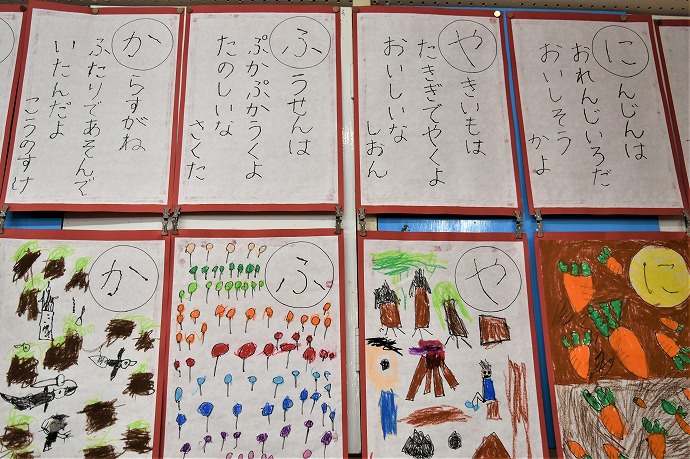 に
んじんは
おれんじいろだ
おいしそう
かよ
や
きいもは
たきぎでやくよ
おいしいな
しおん
ふ
うせんは
ぷかぷかうくよ
たのしいな
さくた
か
らすがね
ふたりであそんで
いたんだよ
こうのすけ
に
や
ふ
か